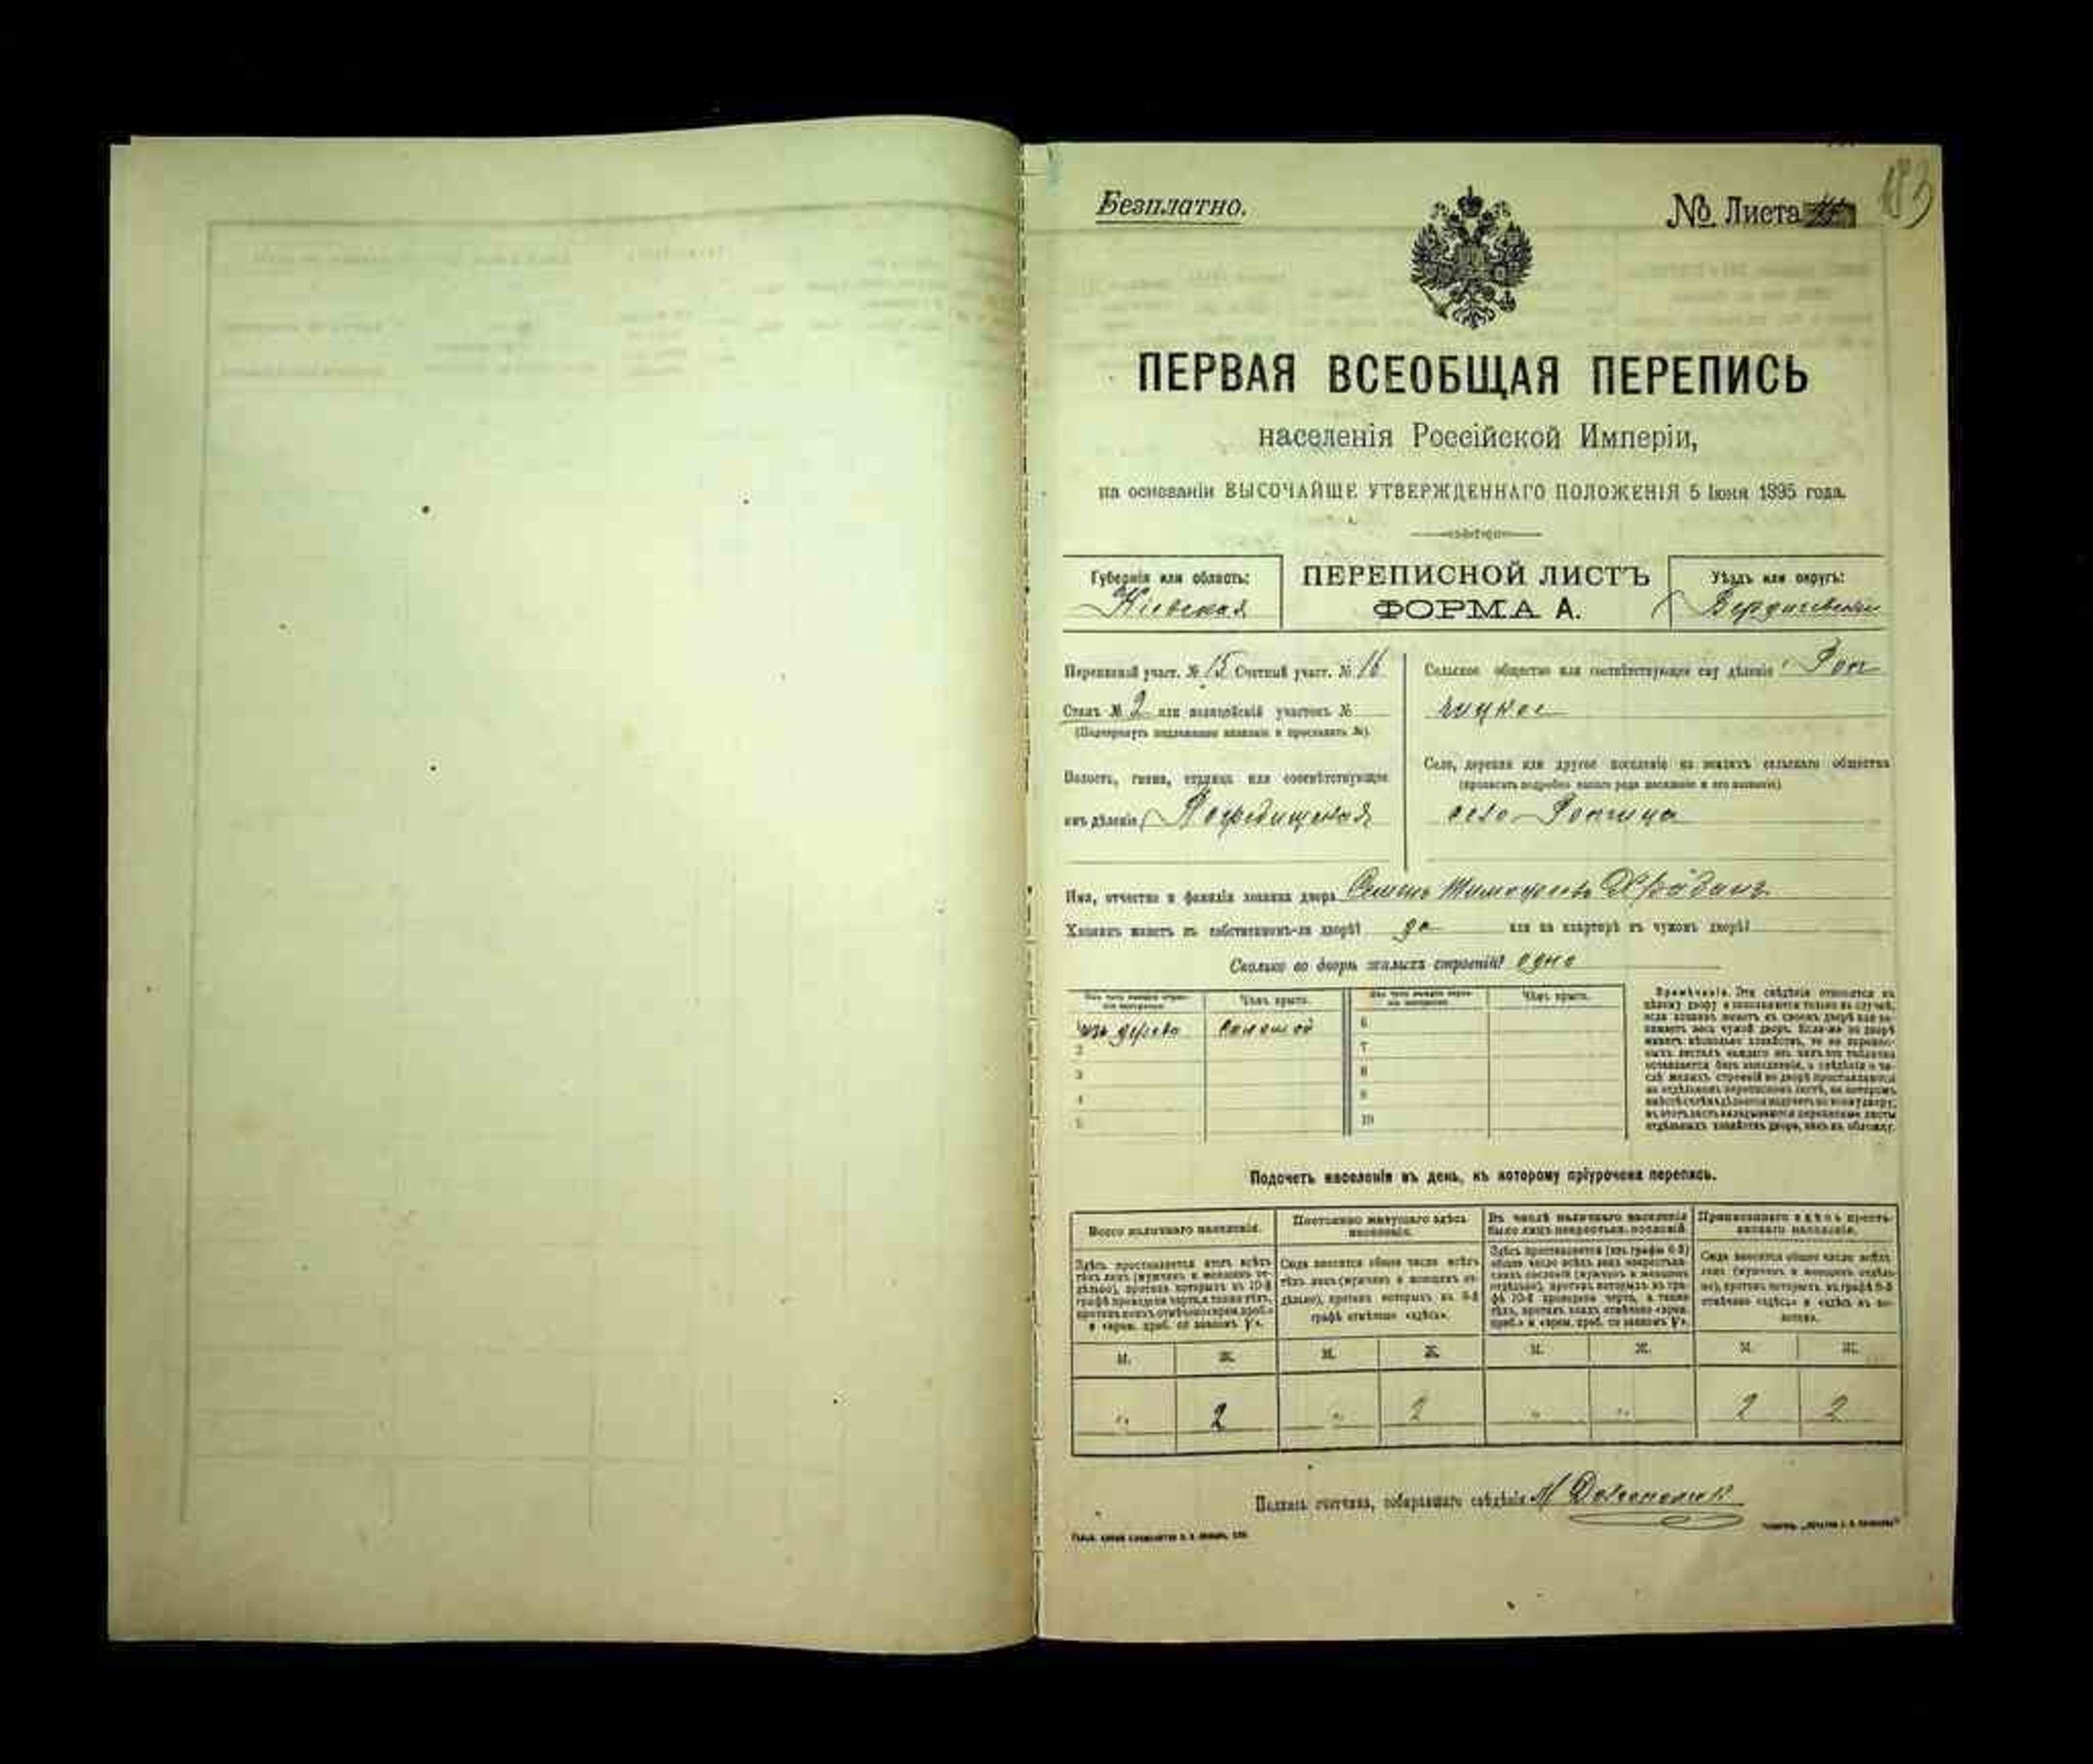 Безплатно.
№ Листа
183
ПЕРВАЯ ВСЕОБЩАЯ ПЕРЕПИСЬ
населенія Россійской Имперіи,
на основаніи ВЫСОЧАЙШЕ УТВЕРЖДЕННАГО ПОЛОЖЕНІЯ 5 Іюня 1895 года.
Губернія или область:
Кіевская
ПЕРЕПИСНОЙ ЛИСТЪ
ФОРМА А.
Уѣздъ или округъ:
Бердичевскій
Переписной участ. № 15 Счетный участ. № 16
Станъ № 2 или полицейскій участокъ №
(Подчеркнуть подлежащее названіе и проставить №).
Волость, гмина, станица или соотвѣтствующее
имъ дѣленіе Погребищская
Сельское общество или соотвѣтствующее ему дѣленіе Роп
чицкое
Село, деревня или другое поселеніе на земляхъ сельскаго общества
(прописать подробно какого рода поселеніе и его названіе)
село Ропчица
Имя, отчество и фамилія хозяина двора
Хозяинъ живетъ въ собственномъ-ли дворѣ? да или на квартирѣ въ чужомъ дворѣ?
Сколько во дворѣ жилыхъ строеній? одно
Чѣмъ крыто.
Чѣмъ крыто.
изъ дерева соломой
2
3
4
5
6
7
8
9
10
Примѣчаніе. Эти свѣдѣнія относятся къ
цѣлому двору и заполняются только въ случаѣ,
если хозяинъ живетъ въ своемъ дворѣ или за-
нимаетъ весь чужой дворъ. Если-же во дворѣ
живетъ нѣсколько хозяйствъ, то на перепис-
ныхъ листахъ каждаго изъ нихъ эта табличка
оставляется безъ заполненія, а свѣдѣнія о чи-
слѣ жилыхъ строеній во дворѣ проставляются
на отдѣльномъ переписномъ листѣ, на которомъ
вмѣстѣ съ тѣмъ дѣлается подсчетъ по всему двору;
въ этотъ листъ вкладываются переписные листы
отдѣльныхъ хозяйствъ двора, какъ въ обложку.
Подсчетъ населенія въ день, къ которому пріурочена перепись.
Всего наличнаго населенія.
Здѣсь проставляется итогъ всѣхъ
тѣхъ лицъ (мужчинъ и женщинъ от-
дѣльно), противъ которыхъ въ 10-й
графѣ проведена черта, а также тѣхъ,
противъ коихъ отмѣчено «врем. преб.»
и «врем. преб. со знакомъ V».
Постоянно живущаго здѣсь
населенія.
Сюда вносится общее число всѣхъ
тѣхъ лицъ (мужчинъ и женщинъ от-
дѣльно), противъ которыхъ въ 9-й
графѣ отмѣчено «здѣсь».
Въ числѣ наличнаго населенія
было лицъ некрестьян. сословій
Здѣсь проставляется (изъ графы 6-й)
общее число всѣхъ лицъ некрестьян-
скихъ сословій (мужчинъ и женщинъ
отдѣльно), противъ которыхъ въ гра-
фѣ 10-й проведена черта, а также
тѣхъ, противъ коихъ отмѣчено «врем.
преб.» и «врем. преб. со знакомъ V».
Приписаннаго здѣсь кресть-
янскаго населенія.
Сюда вносится общее число всѣхъ
лицъ (мужчинъ и женщинъ отдѣль-
но), противъ которыхъ въ графѣ 8-й
отмѣчено «здѣсь» и «здѣсь въ во-
лости».
М. Ж. М. Ж. М. Ж. М. Ж.
" 2 " 2 " " 2 2
Подпись счетчика, собиравшаго свѣдѣнія